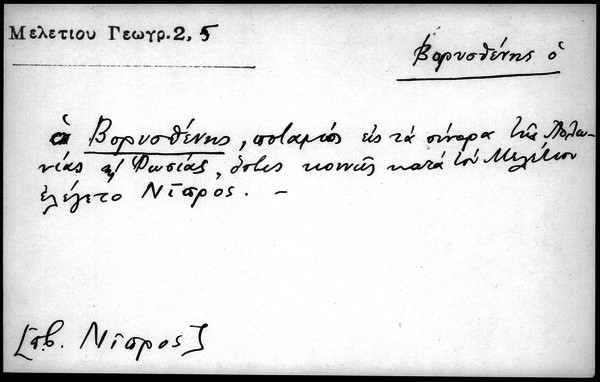 Μελετίου Γεωγρ. 2, 5
Βορυσθένης ὁ
ὁ Βορυσθένης, ποταμὸς εἰς τὰ σύνορα τῆς Πολω-
νίας καὶ Ῥωσίας, ὅστις κοινῶς κατὰ τὸν Μελέτιον
ἐλέγετο Νίπρος. –
[πβ. Νίπρος]